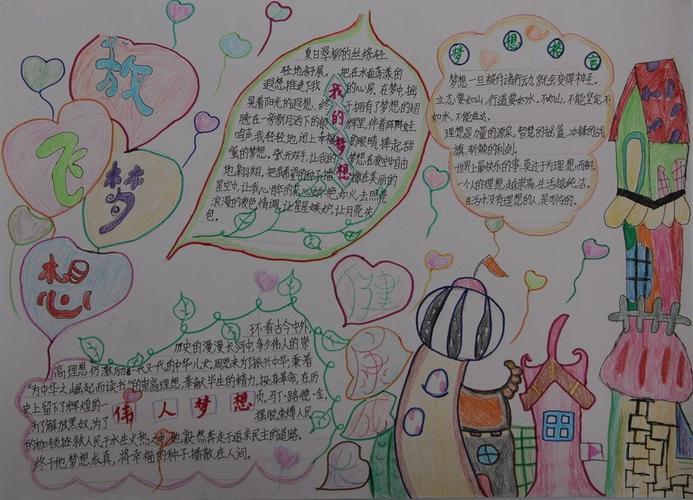 放
飞
梦
想
夏日翠柳的丝绦在
轻抚舒展,把在水面荡漾的
遐想,推进了我的心房,在梦中,摇
晃着阳光的遐想,终于拥有了梦想的翅
膀,在一旁朗月洒下的
鸣声,我轻轻地,闭上幸福的眼睛,捧起甜
蜜的梦想。张开双手,让我的梦想在夜空中自
由地翱翔,把我希望的种子播撒在美丽的
星空中,让
浪漫的夜色情调,让星星嫉妒,让月亮失
色。
我
的
梦
想
梦想格言
梦想一旦被付诸行动,就会变得神圣。
立志要如山,行道要如水。不如山,不能坚定,不
如水,不能曲达。
理想是力量的源泉、智慧的摇篮、冲锋的战
旗、斩棘的利剑。
世界上最快乐的事,莫过于为理想而奋斗。
一个人的理想越崇高,生活越纯洁。
生活中没有理想的人,是可怜的。
环看古今中外,
历史的漫漫长河中,多少伟人的崇
高理想仍激励着一代又一代的中华儿女,周恩来为了振兴中华,秉着
“为中华之崛起而读书”的崇高理想,奉献毕生的精力,投身革命,在历
史上留下了辉煌的一页,马丁·路德·金,
伟人梦想
为了解放黑奴,为了摆脱束缚人民
的枷锁,拯救人民于水生火热之中,他毅然奔走于追求民主的道路。
终于他梦想成真,将幸福的种子播散在人间。